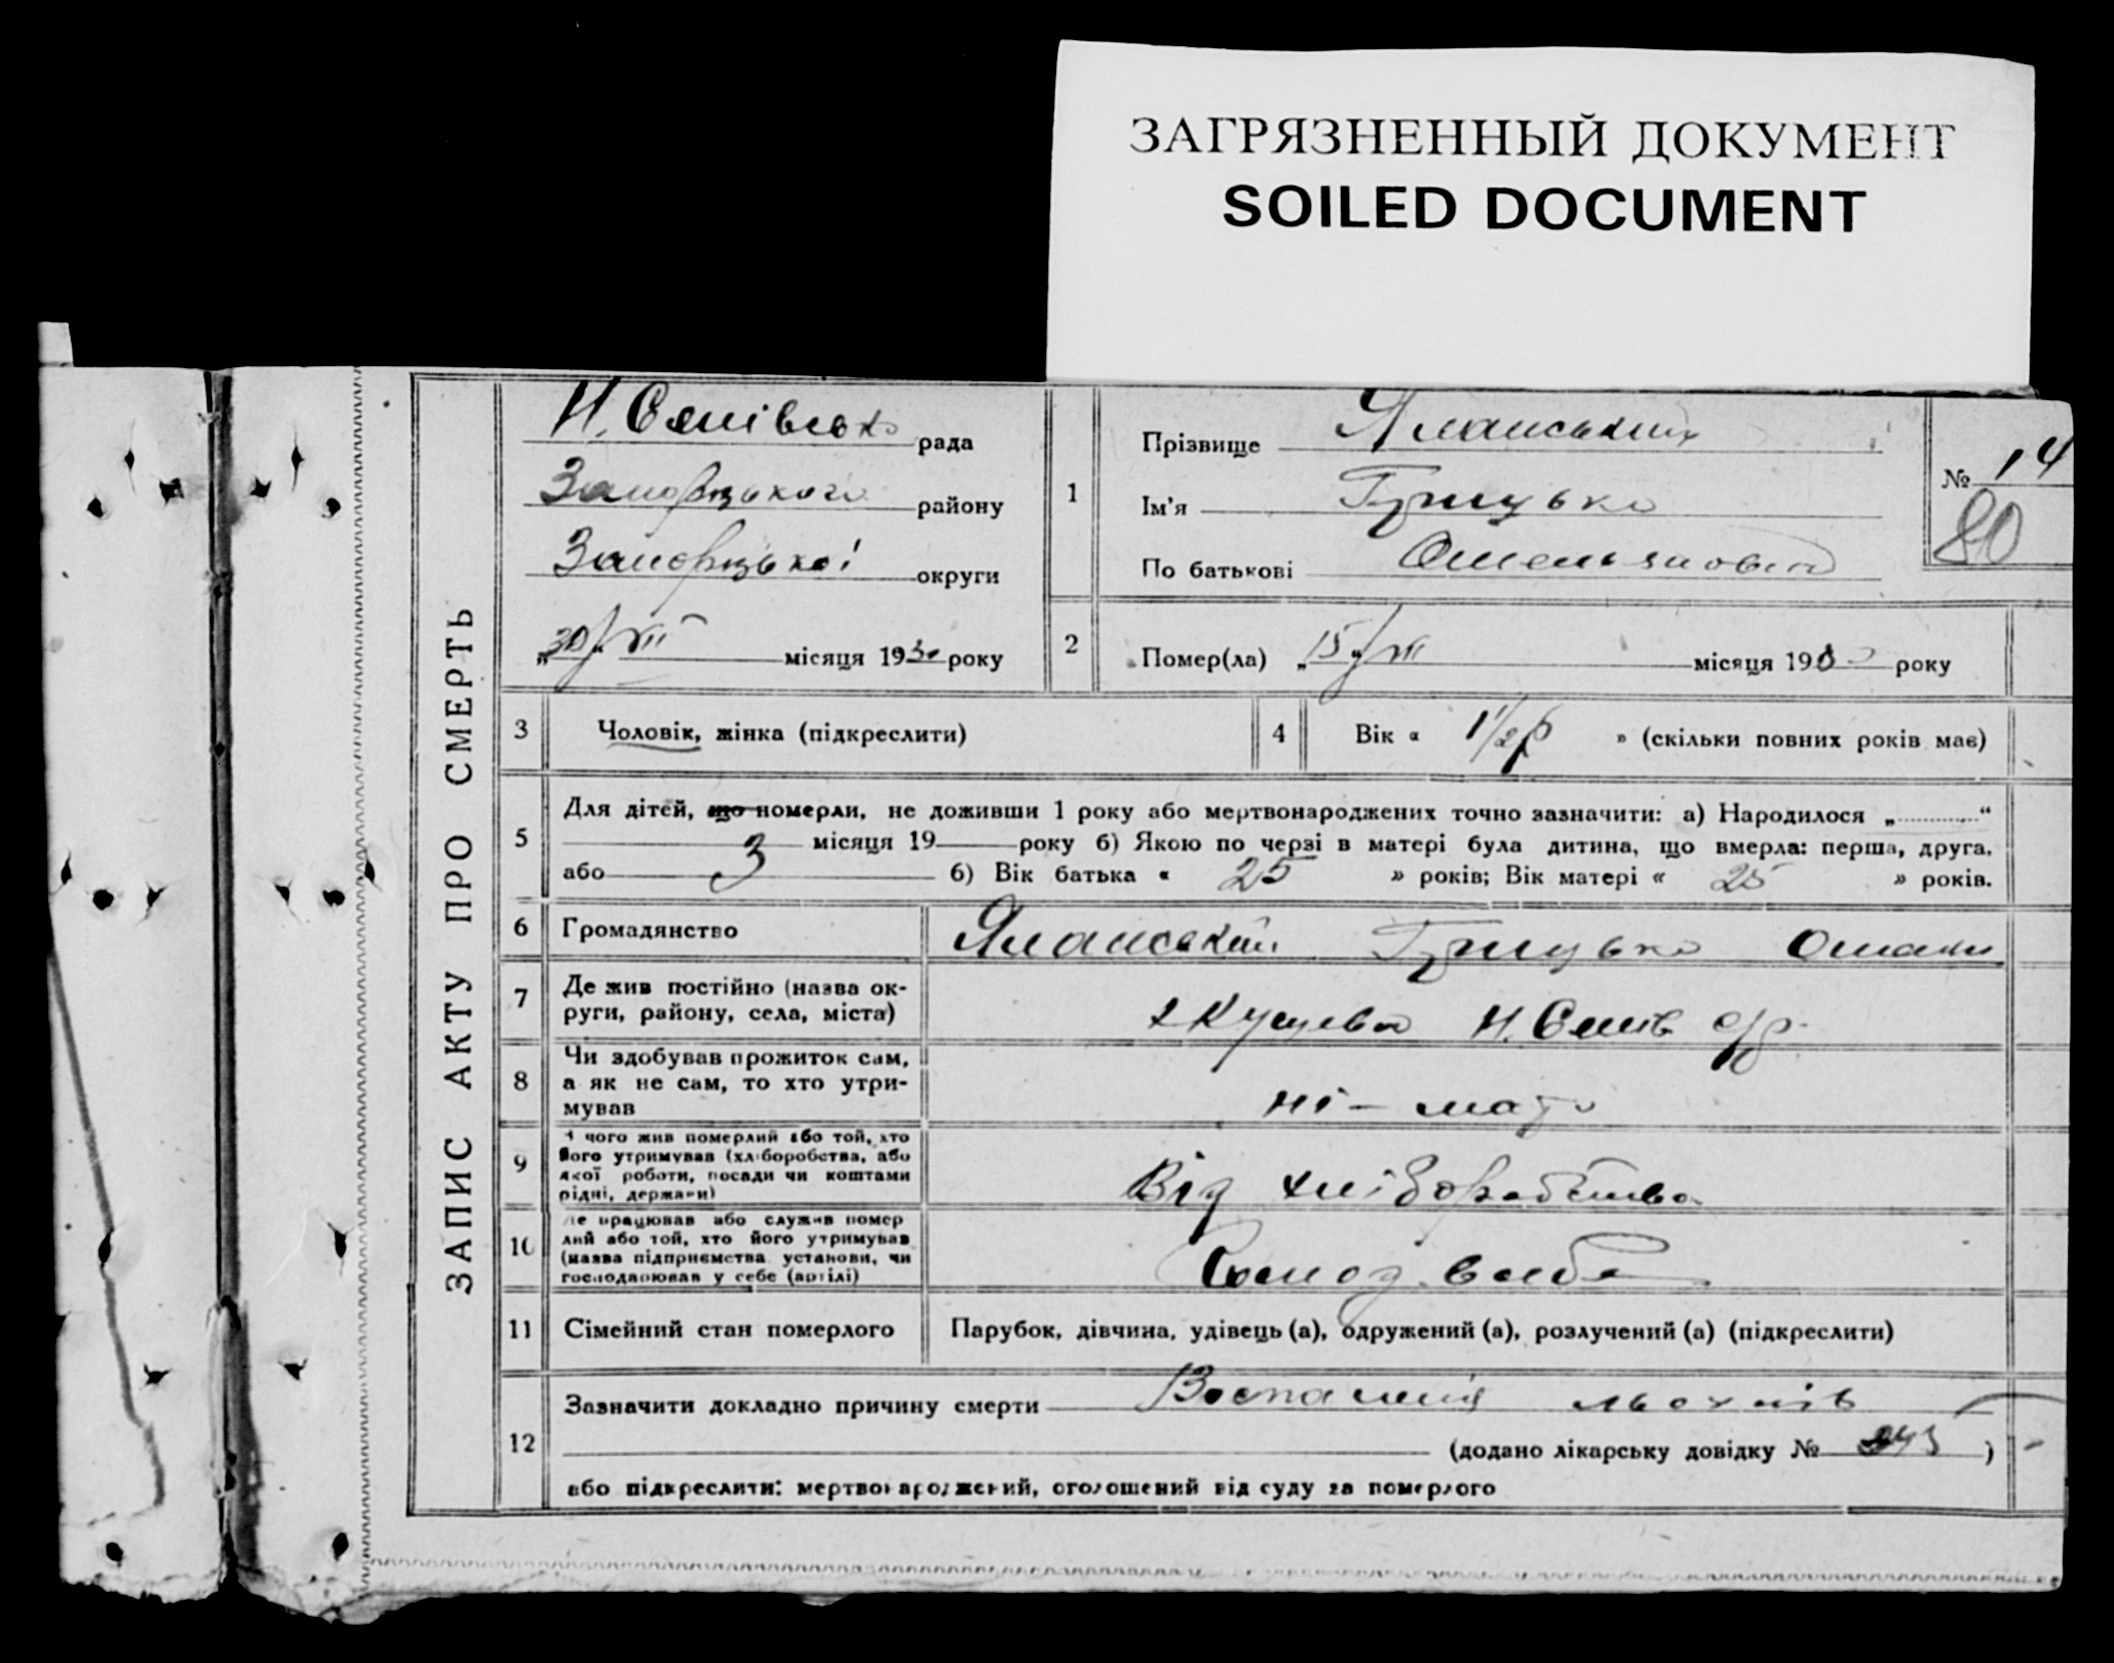 ЗАГРЯЗНЕННЫЙ ДОКУМЕНТ
SOILED DOCUMENT
ЗАПИС АКТУ ПРО СМЕРТЬ
рада
району
округи
„30“ VII місяця 1930 року
1
Прізвище Яланський
Ім'я Грицько
По батькові
№ 14
80
2
Помер(ла) „15“ VII місяця 193 року
3
Чоловік, жінка (підкреслити)
4
Вік « 1 1/2 р » (скільки повних років має)
5
Для дітей, що померли, не доживши 1 року або мертвонароджених точно зазначити: а) Народилося „ “
місяця 19 року б) Якою по черзі в матері була дитина, що вмерла: перша, друга,
або 3 б) Вік батька « 25 » років; Вік матері « 25 » років.
6
Громадянство
Яланський Грицько
7
Де жив постійно (назва ок-
руги, району, села, міста)
8
Чи здобував прожиток сам,
а як не сам, то хто утри-
мував
ні – мати
9
З чого жив померлий або той, хто
його утримував (хліборобства, або
якої роботи, посади чи коштами
рідні, держави)
Від хліборобства
10
Де працював або служив помер
лий або той, хто його утримував
(назва підприємства установи, чи
господарював у себе (артілі)
11
Сімейний стан померлого
Парубок, дівчина, удівець (а), одружений (а), розлучений (а) (підкреслити)
12
Зазначити докладно причину смерти
(додано лікарську довідку № )
або підкреслити: мертвонароджений, оголошений від суду за померлого